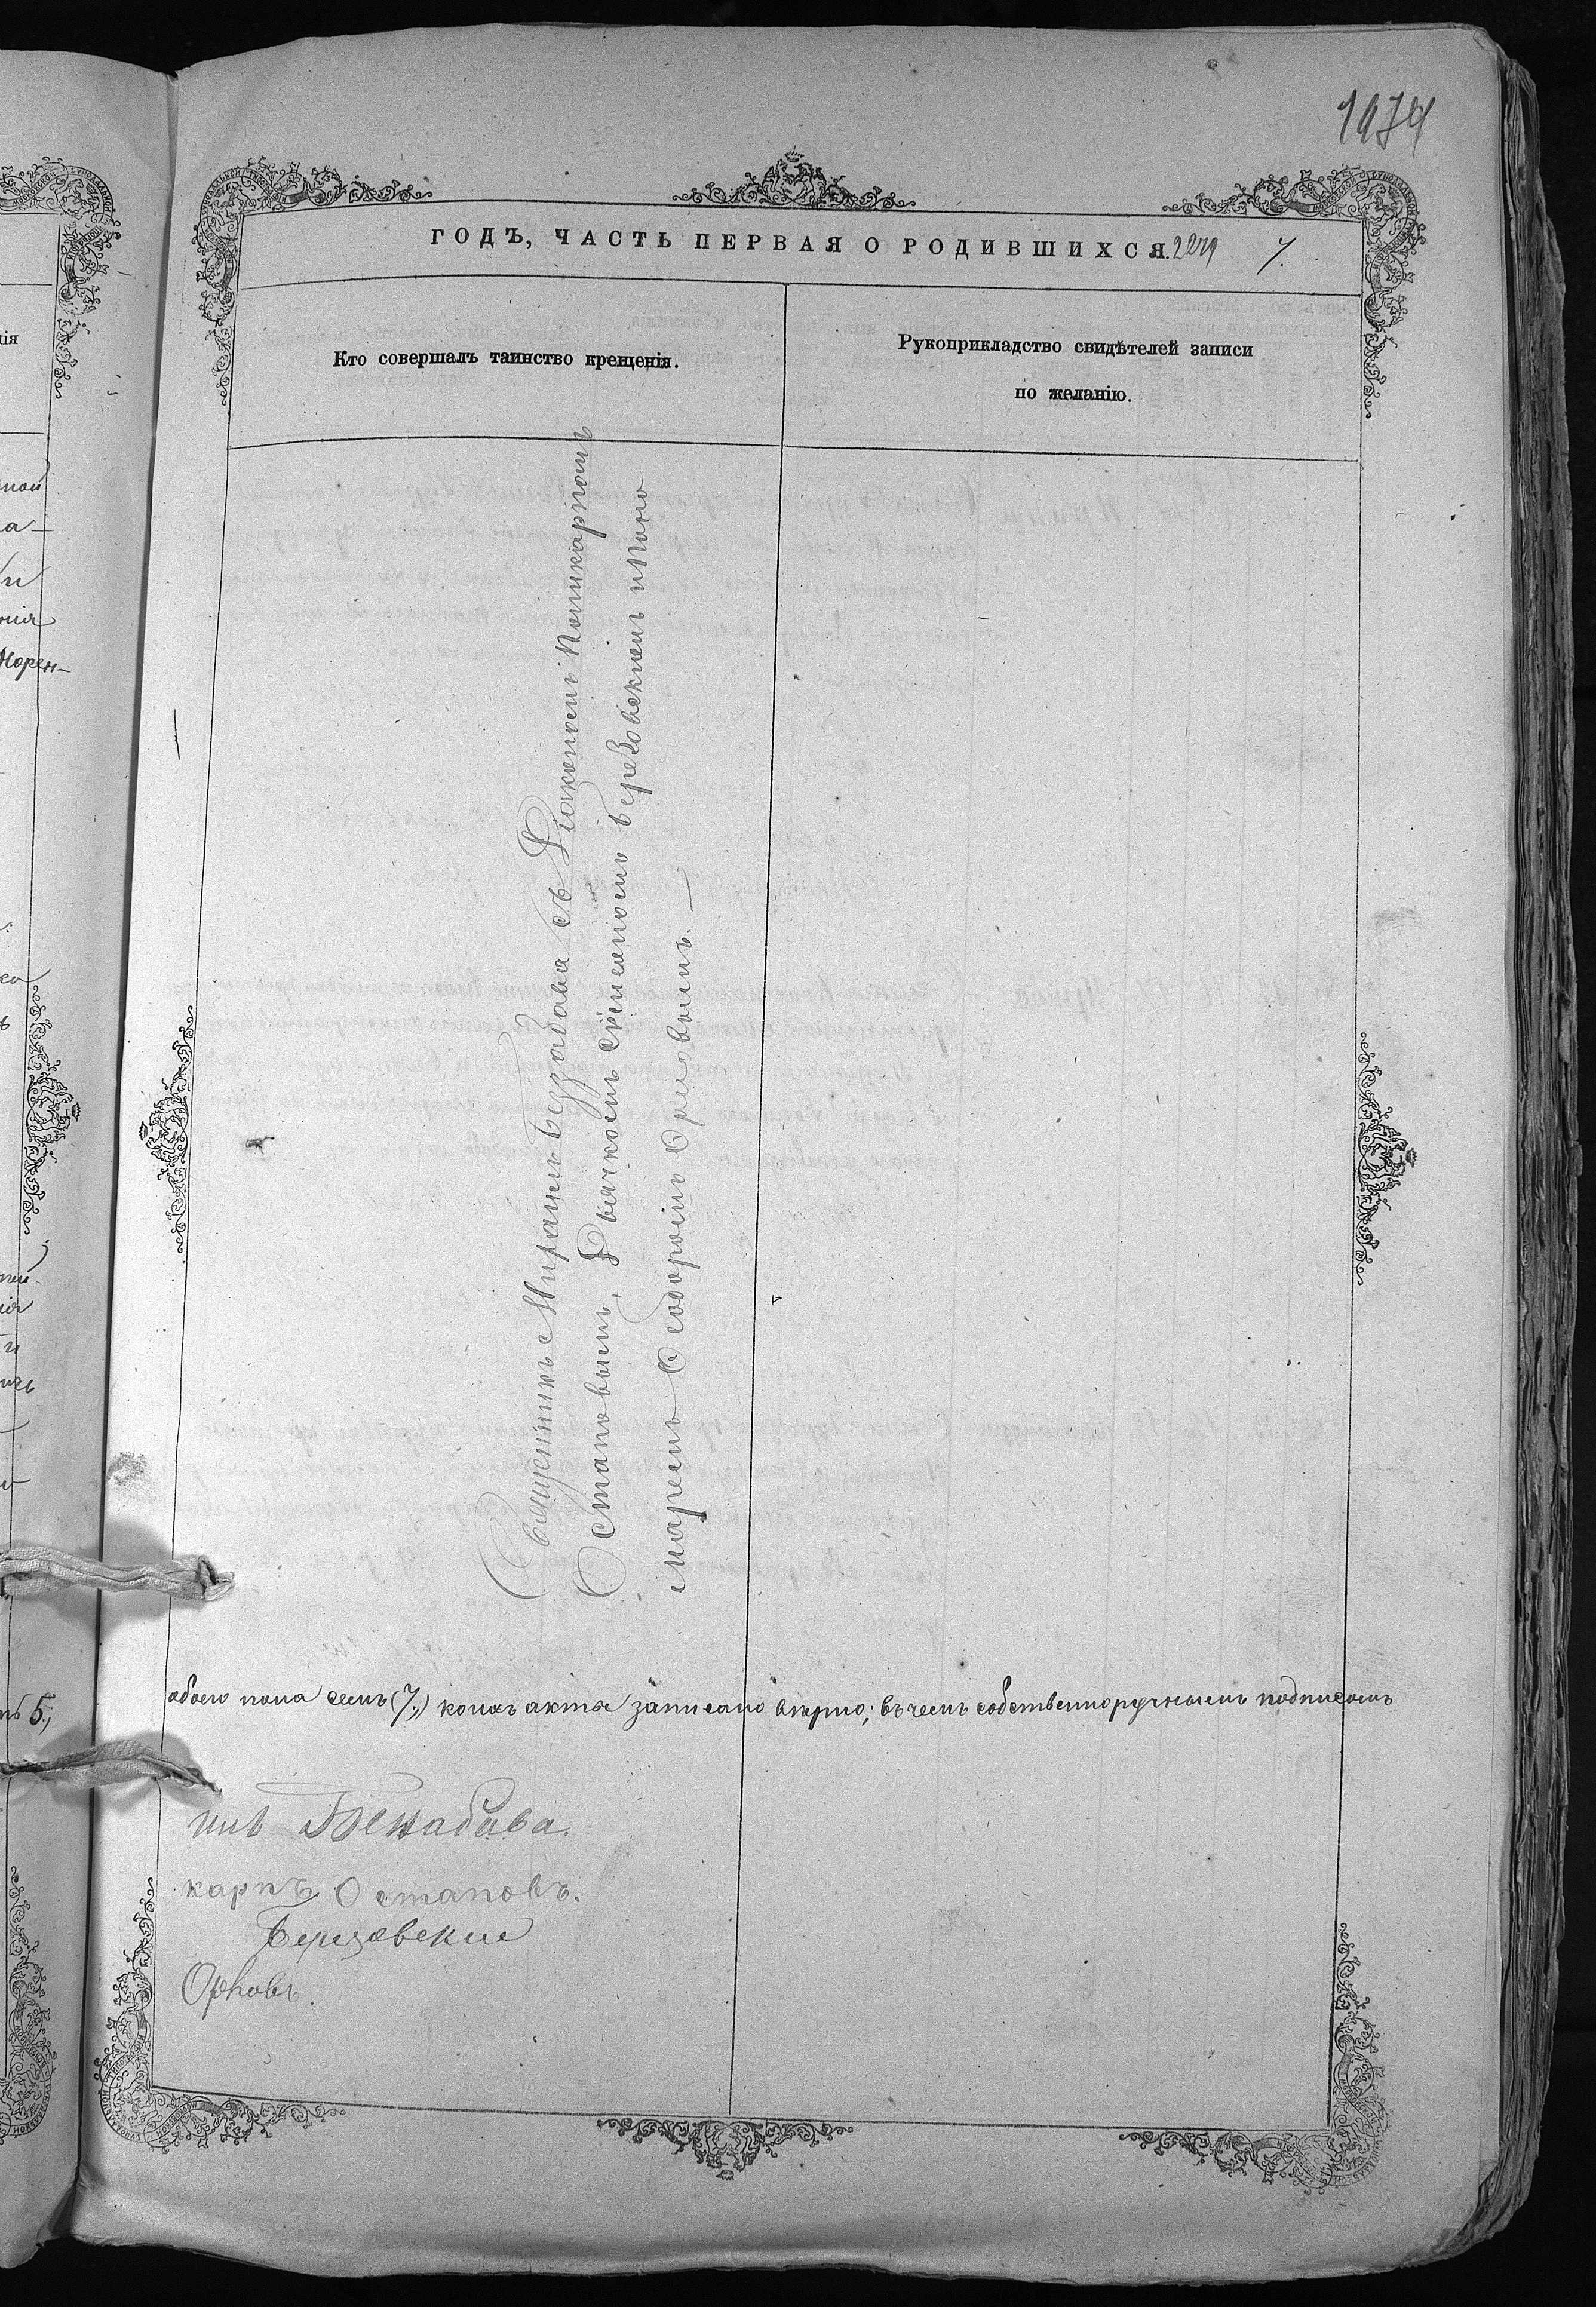 1974
ГОДЪ, ЧАСТЬ ПЕРВАЯ О РОДИВШИХСЯ. 2279 7.
Кто совершалъ таинство крещенія.
Рукоприкладство свидѣтелей записи
по желанію.
Священникъ Митрофанъ Беззабава съ Діакономъ Поликарпомъ
Остаповымъ, Дьячкомъ Симеономъ Березовскимъ и Поно
маремъ Ѳедоромъ Орловымъ. —
обоего пола семь (7.) коихъ акты записано вѣрно; въ чемъ собственноручнымъ подписомъ
никъ Беззабава.
карпъ Остаповъ.
Березовскій
Орловъ.
ія
ной
а-
и
нія
Морен-
5.,